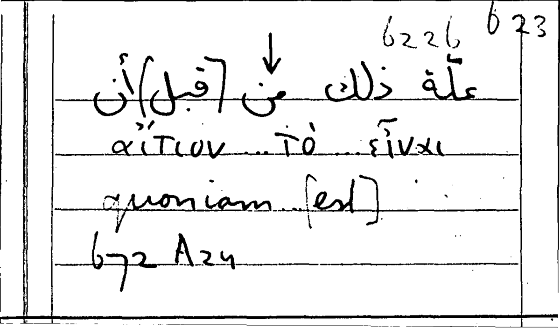 6226 623
علّة ذلك من [قبل] أن
αἴτιον ... τὸ ... εἶναι
quoniam .. [est]
672 A24